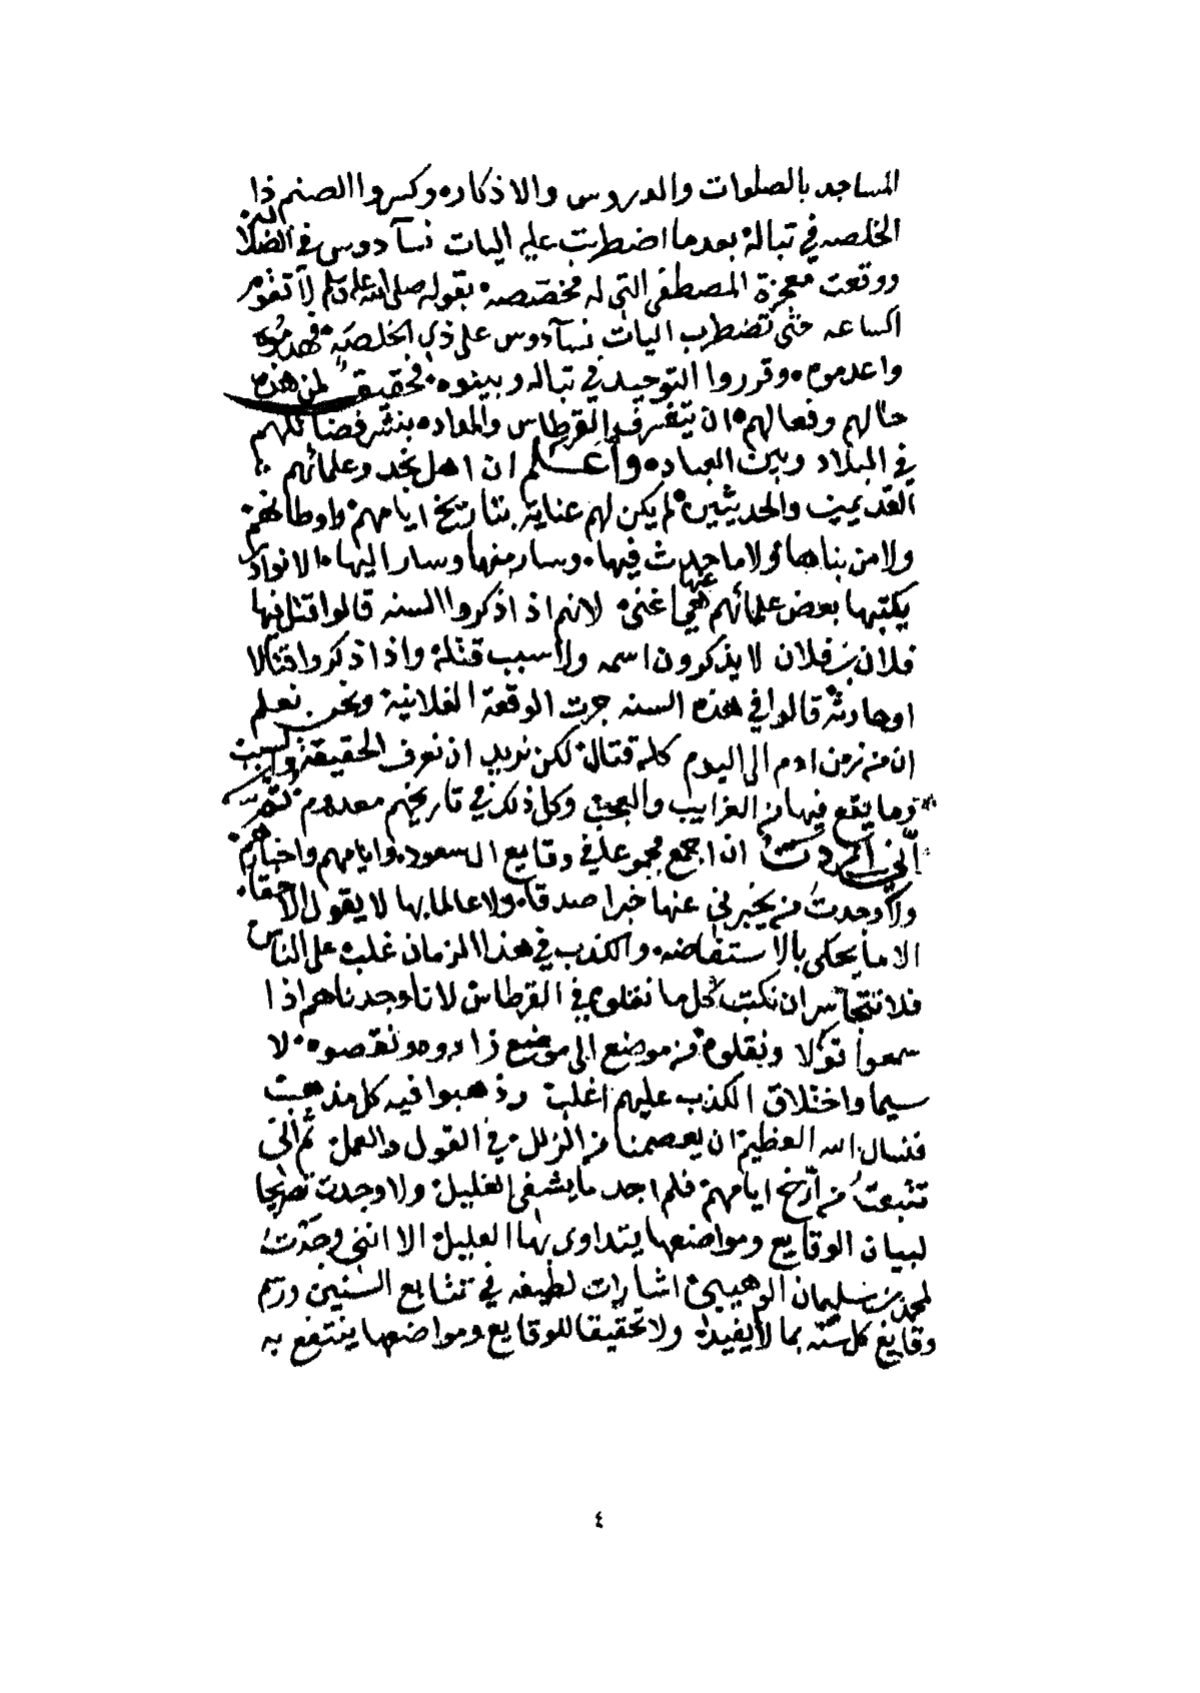 المساجد بالصلوات والدروس والاذكار ه وكسروا الصنم ذا
الخلصه في تبالة بعدما اضطربت عليه اليات نسآ دوس في الضلا
ووقعت معجزة المصطفى التي له مختصه بقوله صلى الله عليه وسلم لا تقوم
الساعه حتى تضطرب اليات نسآ دوس على ذي الخلصه فهدموه
واعدموه وقرروا التوحيد في تباله وبينوه فحقيق لمن هذه
حالهم وفعالهم ان يتشرف القرطاس والمداد ه بنشر فضائلهم
في البلاد وبين العباد ه واعلم ان اهل نجد وعلمائهم
القديمين والحديثين لم يكن لهم عناية بتاريخ ايامهم واوطانهم
ولا من بناها ولا ما حدث فيها وسار منها وسار اليها الا نوادر
يكتبها بعض علمائهم هي عنها غنى لانهم اذا ذكروا السنه قالوا قتل فيها
فلان بن فلان لا يذكرون اسمه ولا سبب قتله واذا ذكروا قتالا
او حادثه قالوا في هذه السنه جرت الوقعة الفلانية ونحن نعلم
ان من زمن ادم الى اليوم كله قتال لكن نريد ان نعرف الحقيقة والسبب
وما يقع فيها من الغرايب والعجب وكل ذلك في تاريخهم معدوم ثم
انني اردت ان اجمع مجموعا في وقايع ال سعود وايامهم واخبارهم
ولا وجدت من يخبرني عنها خبرا صدقا ولا عالما بها لا يقول الا حقا
الا ما يحكى بالاستفاضه والكذب في هذا الزمان غلب على الناس
فلا نتجاسر ان نكتب كل ما نقلوه في القرطاس لانا وجدناهم اذا
سمعوا قولا ونقلوه من موضع الى موضع زادوه ونقصوه لا
سيما واختلاق الكذب عليهم اغلب وذهبوا فيه كل مذهب
فنسال الله العظيم ان يعصمنا من الزلل في القول والعمل ثم اني
تتبعت من ارخ ايامهم فلم اجد ما يشفي الغليل ولا وجدت تصريحا
لبيان الوقايع ومواضعها يتداوى بها العليل الا انني وجدت
لمحمد بن سليمان الوهيبي اشارات لطيفه في تتابع السنين ورسم
وقايع كل سنه بما لا يفيد ولا تحقيقا للوقايع ومواضعها ينتفع به
٤